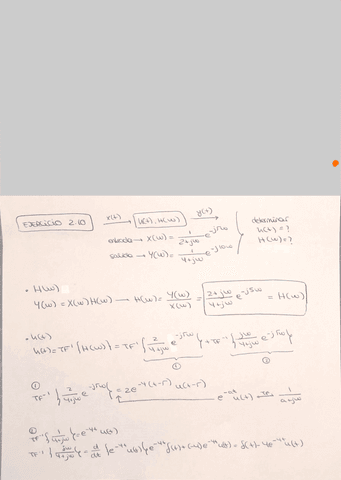 EXERCICIO 2.10
x(t) → h(t), H(w) → y(t)
entrada → X(w) = 1/(2+jw) e^{-j5w}
salida → Y(w) = 1/(4+jw) e^{-j10w}
determinar
h(t) = ?
H(w) = ?
• H(w)
Y(w) = X(w) H(w) → H(w) = Y(w)/X(w) = (2+jw)/(4+jw) e^{-j5w} = H(w)
• h(t)
h(t) = TF⁻¹ {H(w)} = TF⁻¹ { 2/(4+jw) e^{-j5w} } + TF⁻¹ { jw/(4+jw) e^{-j5w} }
① TF⁻¹ { 2/(4+jw) e^{-j5w} } = 2e^{-4(t-5)} u(t-5)
e^{-at} u(t) ↔ 1/(a+jw)
② TF⁻¹ { 1/(4+jw) } = e^{-4t} u(t)
TF⁻¹ { jw/(4+jw) } = d/dt { e^{-4t} u(t) } = e^{-4t} δ(t) + (-4) e^{-4t} u(t) = δ(t) - 4e^{-4t} u(t)